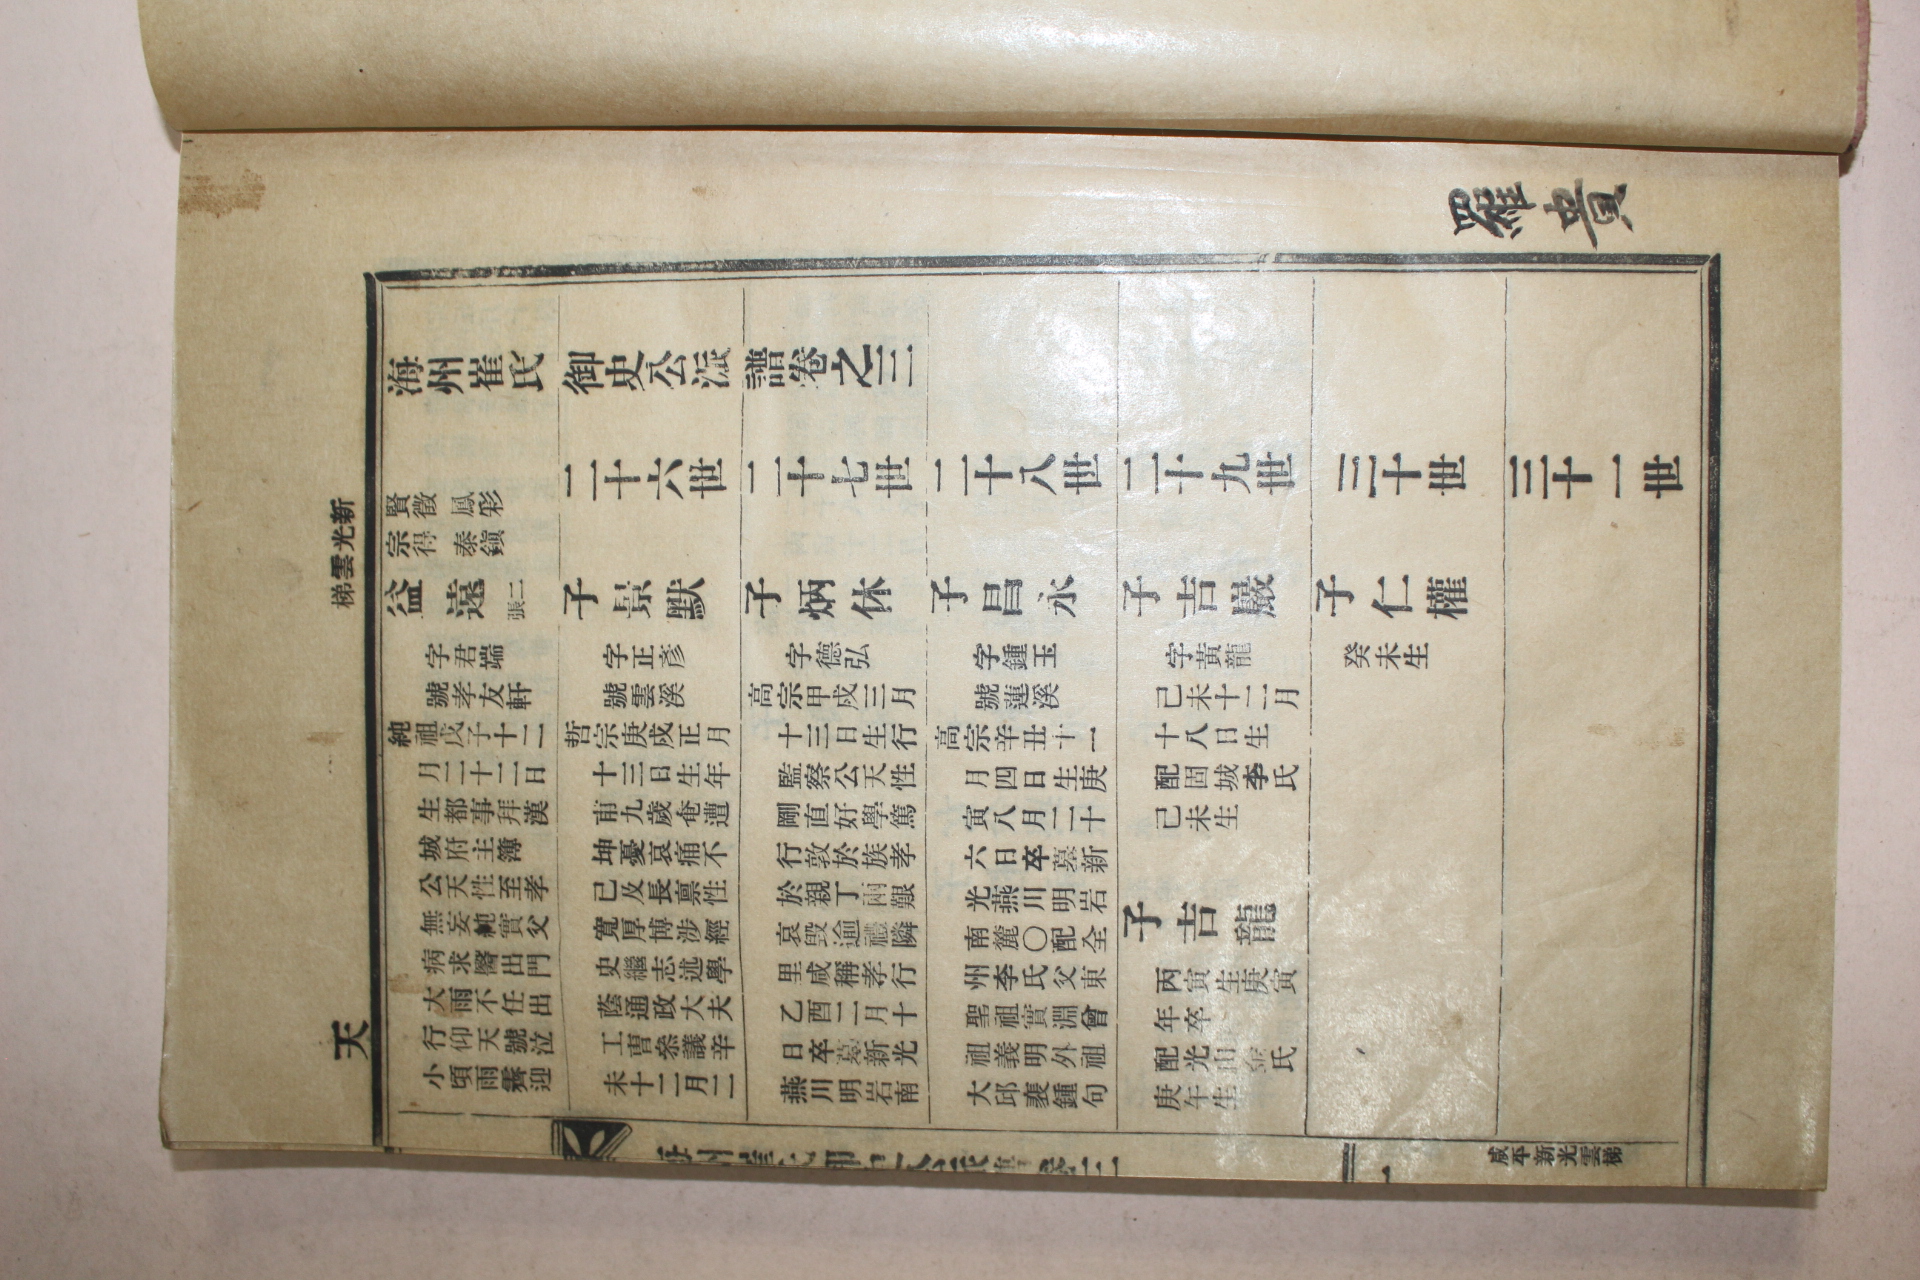 新光雲梯
天
海州崔氏御史公派譜卷之三
二十六世
二十七世
二十八世
二十九世
三十世
三十一世
賢徵 鳳彩
宗得 泰鎭
益遠 二張
字君端
號孝友軒
純祖戊子十二
月二十二日
生都事拜漢
城府主簿
公天性至孝
無妄純實父
病求醫出門
大雨不任出
行仰天號泣
小頃雨霽迎
子景默
字正彥
號雲溪
哲宗庚戌正月
十三日生年
甫九歲奄遭
坤憂哀痛不
已及長禀性
寬厚博涉經
史繼志述學
蔭通政大夫
工曺叅議辛
未十二月二
子炳休
字德弘
高宗甲戌三月
十三日生行
監察公天性
剛直好學篤
行敦於族孝
於親丁兩艱
哀毀逾禮隣
里咸稱孝行
乙酉二月十
日卒墓新光
燕川明岩南
子昌永
字鍾玉
號蓮溪
高宗辛丑十一
月四日生庚
寅八月二十
六日卒墓新
光燕川明岩
南麓〇配全
州李氏父東
聖祖實淵曾
祖義明外祖
大邱裵鍾句
子吉巖
字黃龍
己未十二月
十八日生
配固城李氏
己未生
子吉龍
丙寅生庚寅
年卒
配光山金氏
庚午生
子仁權
癸未生
海州崔氏御史公派譜卷三
一
咸平新光雲梯
羅貴